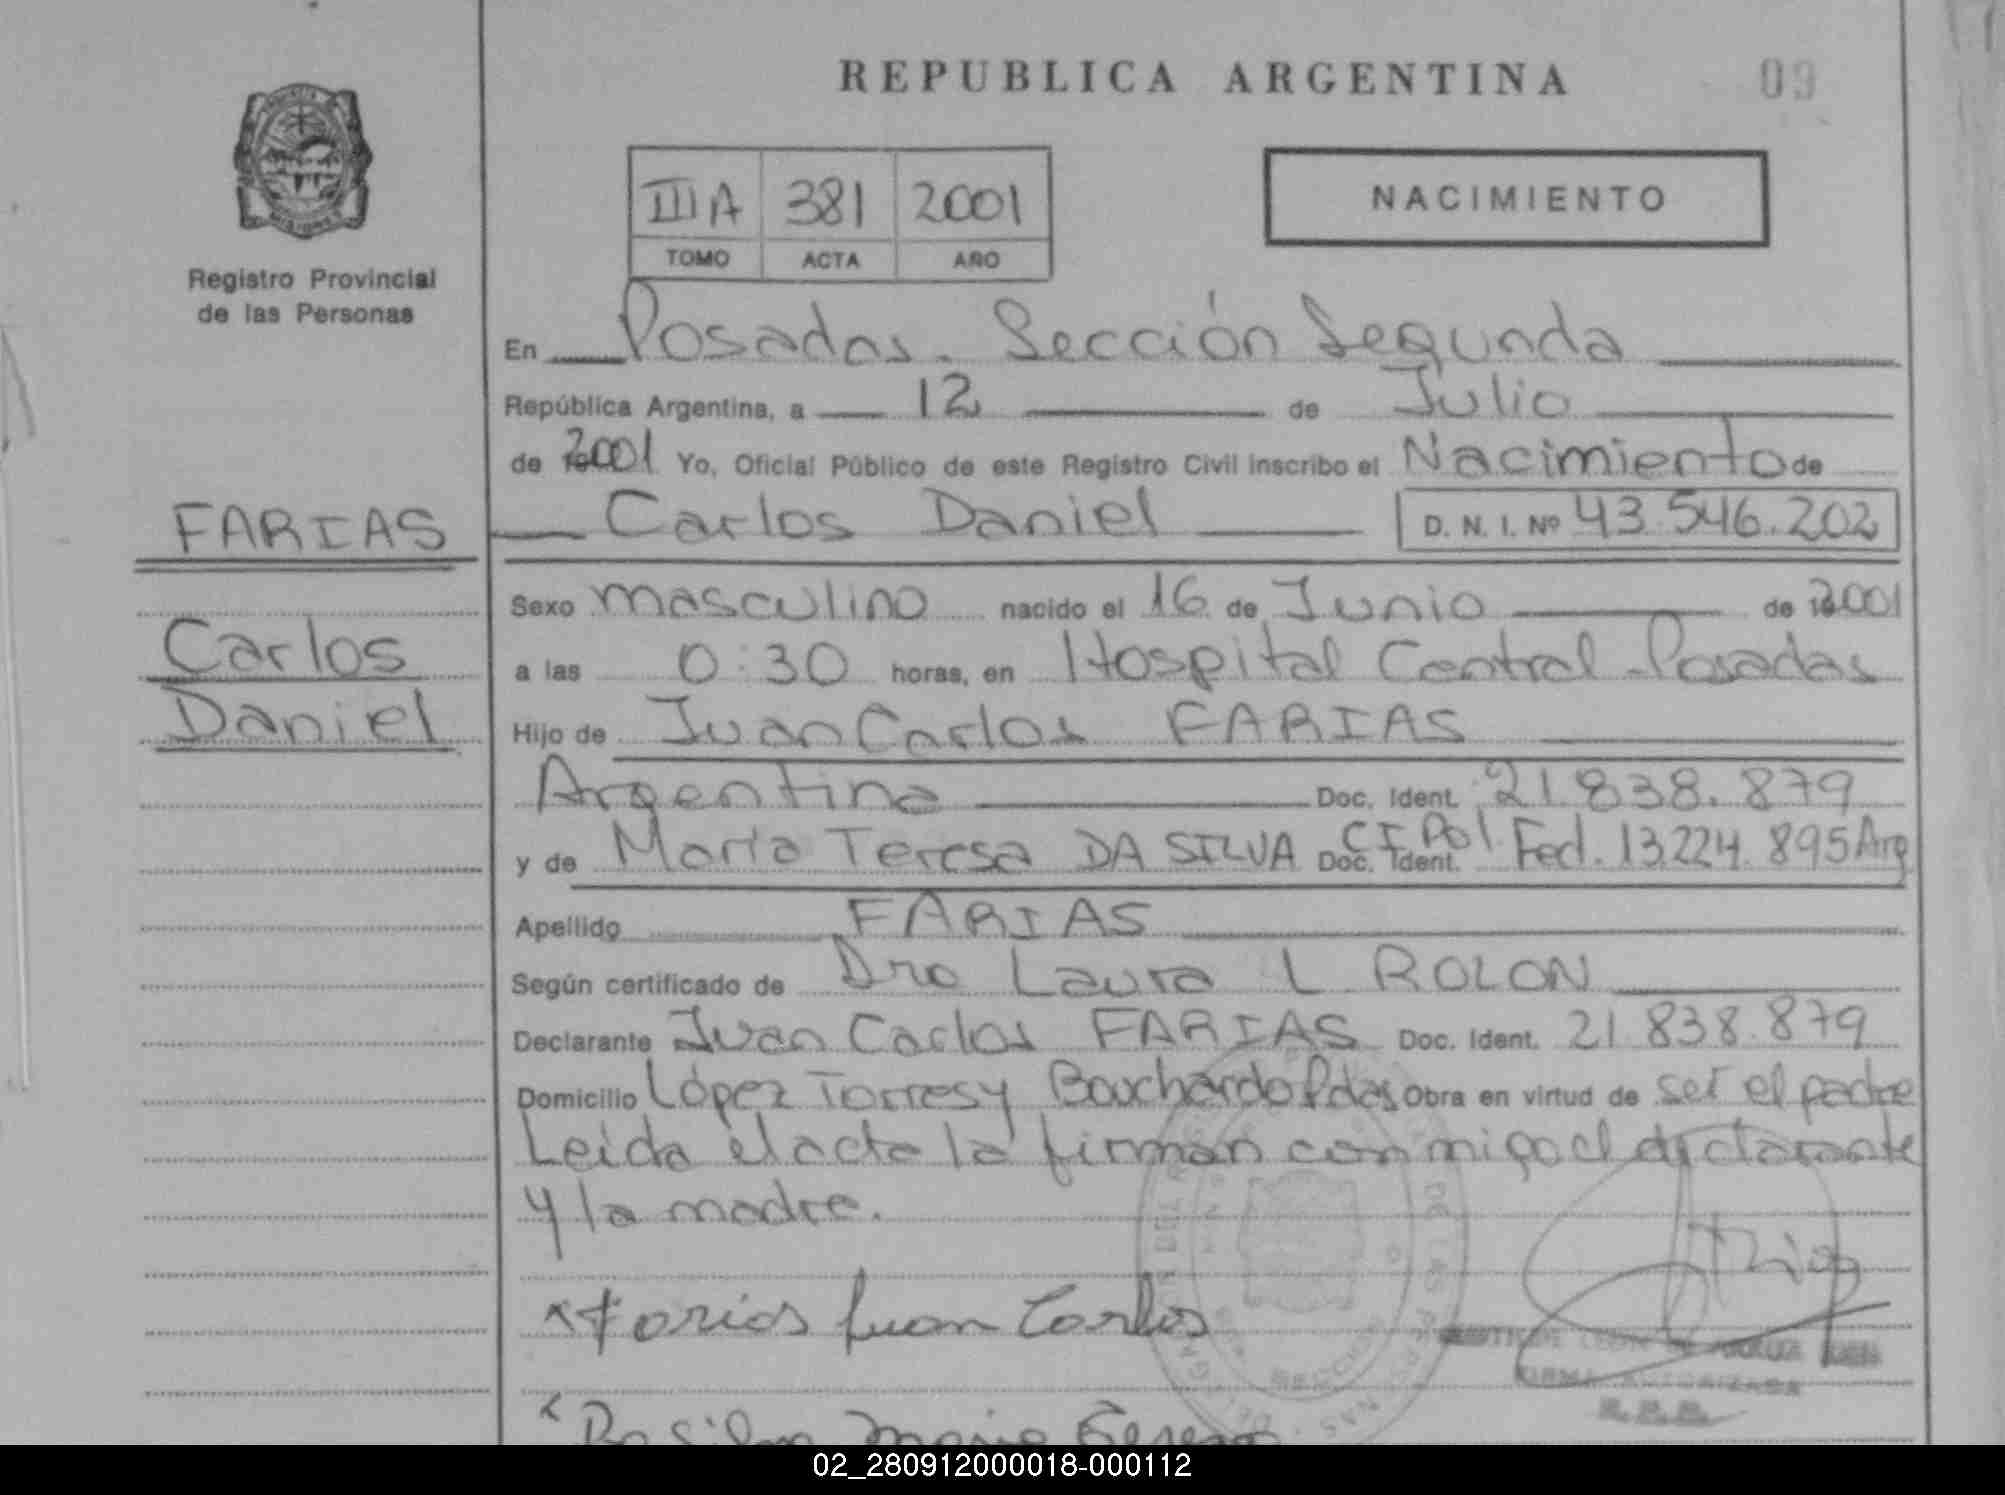 REPUBLICA ARGENTINA
09
Registro Provincial
de las Personas
III A 381 2001
TOMO ACTA AÑO
NACIMIENTO
En Posadas. Sección Segunda
República Argentina, a 12 de Julio
de 2001 Yo, Oficial Público de este Registro Civil inscribo el Nacimiento de
FARIAS
Carlos
Daniel
Carlos Daniel D. N. I. Nº 43.546.202
Sexo masculino nacido el 16 de Junio de 2001
a las 0:30 horas, en Hospital Central - Posadas
Hijo de Juan Carlos FARIAS
Argentina Doc. Ident. 21.838.879
y de María Teresa DA SILVA Doc. Ident. C.I. Pol. Fed. 13.224.895 Arg
Apellido FARIAS
Según certificado de Dra Laura L ROLON
Declarante Juan Carlos FARIAS Doc. Ident. 21.838.879
Domicilio López Torres y Bouchardo Pdas Obra en virtud de ser el padre
Leída el acta la firman conmigo el declarante
y la madre.
x Farias Juan Carlos
x Da Silva Maria Teresa
FIRMA AUTORIZADA
02_280912000018-000112